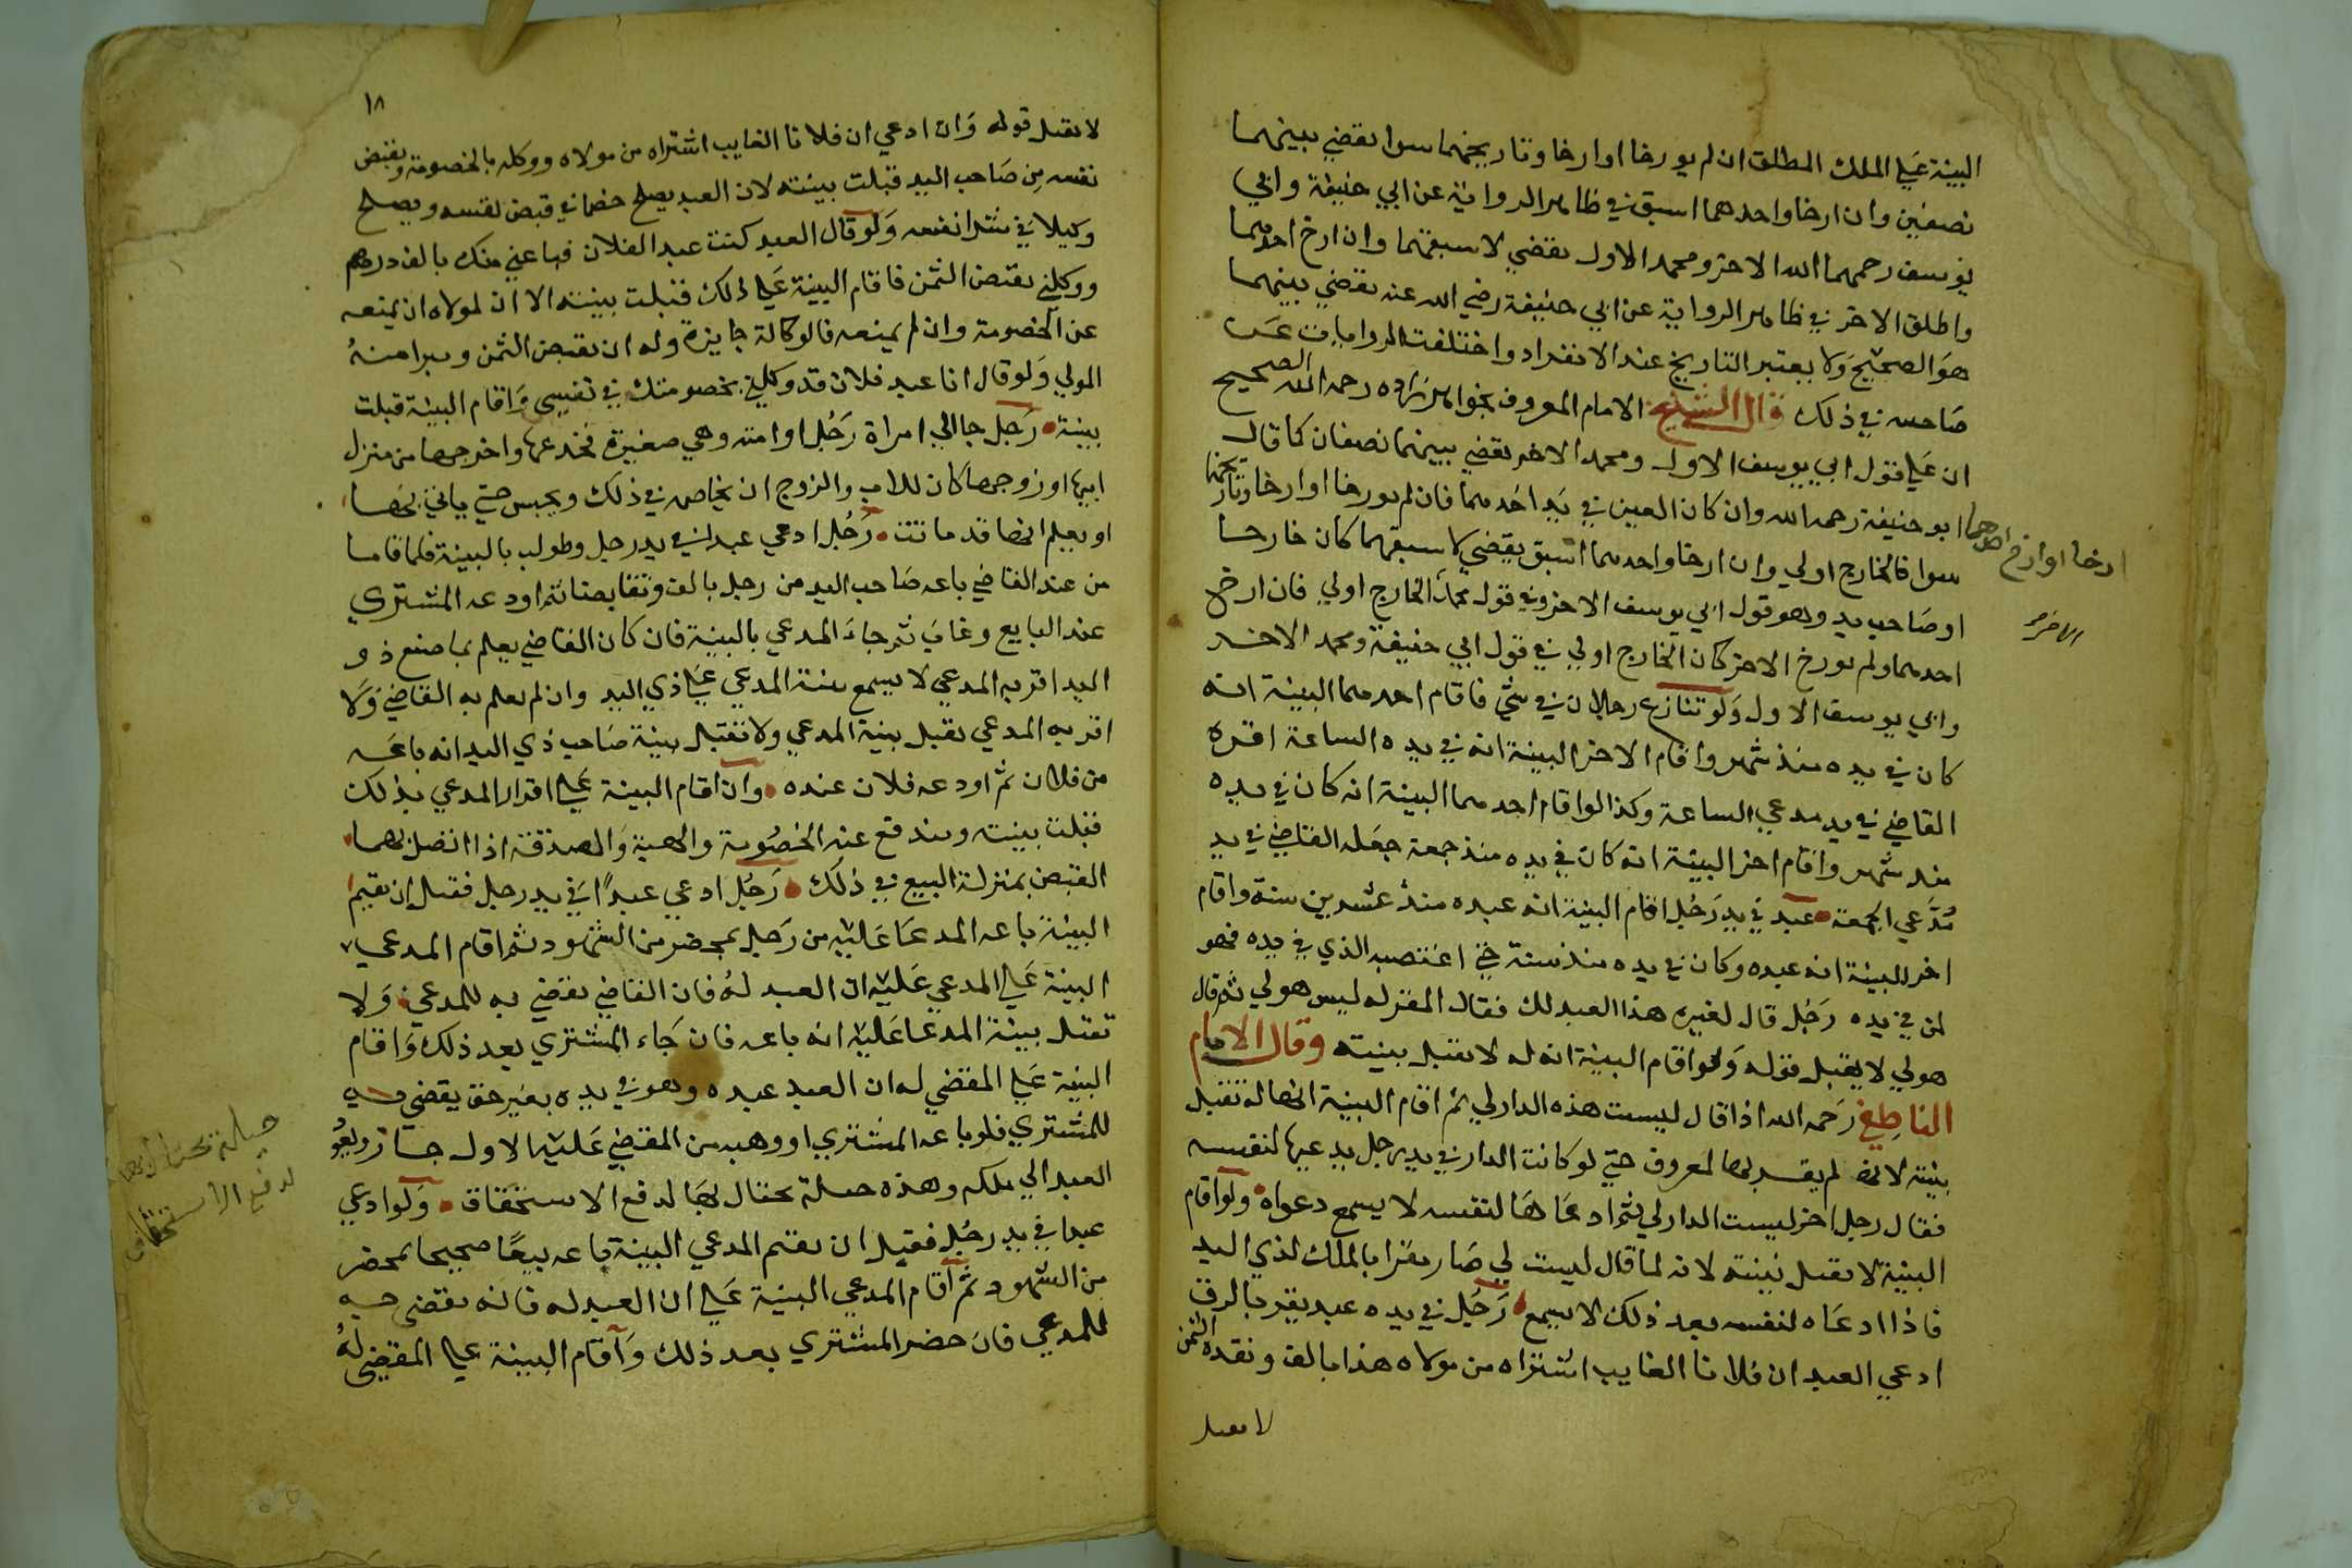 البينة علي الملك المطلق ان لم يورخا او ارخا وتاريخهما سوا يقضي بينهما
نصفين وان ارخا واحدهما اسبق في ظاهر الرواية عن ابي حنيفة وابي
يوسف رحمهما الله الاخر ومحمد الاول يقضي لاسبقهما وان ارخ احدهما
واطلق الاخر في ظاهر الرواية عن ابي حنيفة رضي الله عنه يقضي بينهما
هو الصحيح ولا يعتبر التاريخ عند الانفراد واختلفت الروايات عن
صاحبيه في ذلك قال الشيخ الامام المعروف بخواهر زاده رحمه الله الصحيح
ان علي قول ابي يوسف الاول ومحمد الاخر يقضي بينهما نصفان كما قال
ابو حنيفة رحمه الله وان كان العين في يد احدهما فان لم يورخا او ارخا وتاريخهما
سوا فالخارج اولي وان ارخا واحدهما اسبق يقضي لاسبقهما كان خارجا
او صاحب يد وهو قول ابي يوسف الاخر وفي قول محمد الخارج اولي فان ارخ
احدهما ولم يورخ الاخر كان الخارج اولي في قول ابي حنيفة ومحمد الاخر
وابي يوسف الاول ولو تنازع رجلان في شي فاقام احدهما البينة انه
كان في يده منذ شهر واقام الاخر البينة انه في يده الساعة اقره
القاضي في يد مدعي الساعة وكذا لو اقام احدهما البينة انه كان في يده
منذ شهر واقام اخر البينة انه كان في يده منذ جمعة جعله القاضي في يد
مدعي الجمعة عبد في يد رجل اقام البينة انه عبده منذ عشرين سنة واقام
اخر البينة انه عبده وكان في يده منذ سنة حتي اغتصبه الذي في يده فهو
لمن في يده رجل قال لغيره هذا العبد لك فقال المقر له ليس هو لي ثم قال
هو لي لا يقبل قوله ولو اقام البينة انه له لا يقبل بينته وقال الامام
الناطفي رحمه الله اذا قال ليست هذه الدار لي ثم اقام البينة انها له تقبل
بينته لانه لم يقر بها لمعروف حتي لو كانت الدار في يد رجل يدعيها لنفسه
فقال رجل اخر ليست الدار لي ثم ادعاها لنفسه لا يسمع دعواه ولو اقام
البينة لا يقبل بينته لانه لما قال ليست لي صار مقرا بالملك لذي اليد
فاذا ادعاه لنفسه بعد ذلك لا يسمع رجل في يده عبد يقر بالرق
ادعي العبد ان فلانا الغايب اشتراه من مولاه هذا بالف ونقده الثمن
لا يقبل
ارخا او ارخ احدهما
الاخر
١٨
لا يقبل قوله وان ادعي ان فلانا الغايب اشتراه من مولاه ووكله بالخصومة وبقبض
نفسه من صاحب اليد قبلت بينته لان العبد يصلح خصما في قبض نفسه ويصلح
وكيلا في شرا نفسه ولو قال العبد كنت عبدا لفلان فباعني منك بالف درهم
ووكلني بقبض الثمن فاقام البينة علي ذلك قبلت بينته الا ان لمولاه ان يمنعه
عن الخصومة وان لم يمنعه فالوكالة جايزة وله ان يقبض الثمن ويبرا منه
المولي ولو قال انا عبد فلان قد وكلني بخصومتك في نفسي واقام البينة قبلت
بينة رجل جا الي امراة رجل او امته وهي صغيرة فخدعها واخرجها من منزل
ابيها او زوجها كان للاب والزوج ان يخاصم في ذلك ويحبس حتي ياتي بها
او يعلم انها قد ماتت رجل ادعي عبدا في يد رجل وطولب بالبينة فلما قاما
من عند القاضي باعه صاحب اليد من رجل بالف وتقابضا ثم اودعه المشتري
عند البايع وغاب ثم جاء المدعي بالبينة فان كان القاضي يعلم بما صنع ذو
اليد او اقر به المدعي لا يسمع بينة المدعي علي ذي اليد وان لم يعلم به القاضي ولا
اقر به المدعي يقبل بينة المدعي ولا تقبل بينة صاحب ذي اليد انه باعه
من فلان ثم اودعه فلان عنده وان اقام البينة علي اقرار المدعي بذلك
قبلت بينته ويندفع عنه الخصومة والهبة والصدقة اذا اتصل بهما
القبض بمنزلة البيع في ذلك رجل ادعي عبدا في يد رجل فقبل ان يقيم
البينة باعه المدعا عليه من رجل بمحضر من الشهود ثم اقام المدعي
البينة علي المدعي عليه ان العبد له فان القاضي يقضي به للمدعي ولا
تقبل بينة المدعا عليه انه باعه فان جاء المشتري بعد ذلك واقام
البينة علي المقضي له ان العبد عبده وهو في يده بغير حق يقضي به
للمشتري فلو باعه المشتري او وهبه من المقضي عليه الاول جاز ويعود
العبد الي ملكه وهذه حيلة يحتال بها لدفع الاستحقاق ولو ادعي
عبدا في يد رجل فقبل ان يقيم المدعي البينة باعه بيعا صحيحا بمحضر
من الشهود ثم اقام المدعي البينة علي ان العبد له فانه يقضي به
للمدعي فان حضر المشتري بعد ذلك واقام البينة علي المقضي له
حيلة يحتال بها
لدفع الاستحقاق